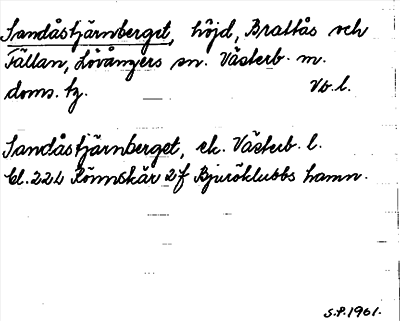 Sandåstjärnberget, höjd, Brattås och
Fällan, Lövångers sn. Västerb. m.
doms. tg. Vb. l.
Sandåstjärnberget, ek. Västerb. l.
bl. 224 Rönnskär 2 f Bjuröklubbs hamn.
S.P. 1961.